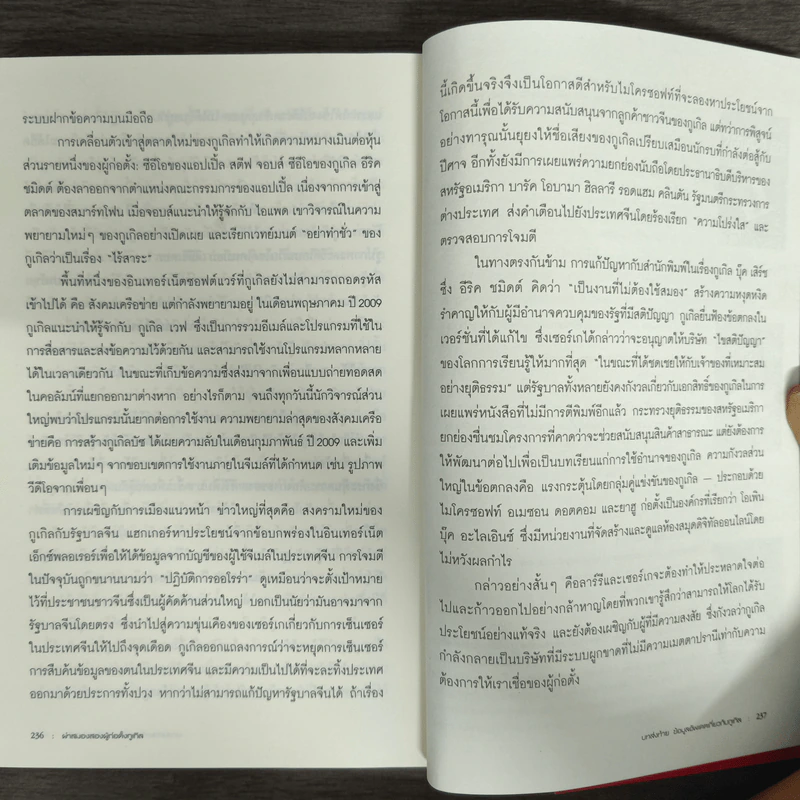 ระบบฝากข้อความบนมือถือ
การเคลื่อนตัวเข้าสู่ตลาดใหม่ของกูเกิลทำให้เกิดความหมางเมินต่อหุ้น
ส่วนรายหนึ่งของผู้ก่อตั้ง: ซีอีโอของแอปเปิ้ล สตีฟ จอบส์ ซีอีโอของกูเกิล อีริค
ชมิดต์ ต้องลาออกจากตำแหน่งคณะกรรมการของแอปเปิ้ล เนื่องจากการเข้าสู่
ตลาดของสมาร์ทโฟน เมื่อจอบส์แนะนำให้รู้จักกับ ไอแพด เขาวิจารณ์ในความ
พยายามใหม่ๆ ของกูเกิลอย่างเปิดเผย และเรียกเวทย์มนต์ “อย่าทำชั่ว” ของ
กูเกิลว่าเป็นเรื่อง “ไร้สาระ”
พื้นที่หนึ่งของอินเทอร์เน็ตซอฟต์แวร์ที่กูเกิลยังไม่สามารถถอดรหัส
เข้าไปได้ คือ สังคมเครือข่าย แต่กำลังพยายามอยู่ ในเดือนพฤษภาคม ปี 2009
กูเกิลแนะนำให้รู้จักกับ กูเกิล เวฟ ซึ่งเป็นการรวมอีเมล์และโปรแกรมที่ใช้ใน
การสื่อสารและส่งข้อความไว้ด้วยกัน และสามารถใช้งานโปรแกรมหลากหลาย
ได้ในเวลาเดียวกัน ในขณะที่เก็บข้อความซึ่งส่งมาจากเพื่อนแบบถ่ายทอดสด
ในคอลัมน์ที่แยกออกมาต่างหาก อย่างไรก็ตาม จนถึงทุกวันนี้นักวิจารณ์ส่วน
ใหญ่พบว่าโปรแกรมนั้นยากต่อการใช้งาน ความพยายามล่าสุดของสังคมเครือ
ข่ายคือ การสร้างกูเกิลบัซ ได้เผยความลับในเดือนกุมภาพันธ์ ปี 2009 และเพิ่ม
เติมข้อมูลใหม่ๆ จากขอบเขตการใช้งานภายในจีเมล์ที่ได้กำหนด เช่น รูปภาพ
วีดีโอจากเพื่อนๆ
การเผชิญกับการเมืองแนวหน้า ข่าวใหญ่ที่สุดคือ สงครามใหม่ของ
กูเกิลกับรัฐบาลจีน แฮกเกอร์หาประโยชน์จากข้อบกพร่องในอินเทอร์เน็ต
เอ็กซ์พลอเรอร์เพื่อให้ได้ข้อมูลจากบัญชีของผู้ใช้จีเมล์ในประเทศจีน การโจมตี
ในปัจจุบันถูกขนานนามว่า “ปฏิบัติการออโรร่า” ดูเหมือนว่าจะตั้งเป้าหมาย
ไว้ที่ประชาชนชาวจีนซึ่งเป็นผู้คัดค้านส่วนใหญ่ บอกเป็นนัยว่ามันอาจมาจาก
รัฐบาลจีนโดยตรง ซึ่งนำไปสู่ความขุ่นเคืองของเซอร์เกเกี่ยวกับการเซ็นเซอร์
ในประเทศจีนให้ไปถึงจุดเดือด กูเกิลออกแถลงการณ์ว่าจะหยุดการเซ็นเซอร์
การสืบค้นข้อมูลของตนในประเทศจีน และมีความเป็นไปได้ที่จะละทิ้งประเทศ
ออกมาด้วยประการทั้งปวง หากว่าไม่สามารถแก้ปัญหารัฐบาลจีนได้ ถ้าเรื่อง
236 : ผ่าสมองสองผู้ก่อตั้งกูเกิล
นี้เกิดขึ้นจริงจึงเป็นโอกาสดีสำหรับไมโครซอฟท์ที่จะลองหาประโยชน์จาก
โอกาสนี้เพื่อได้รับความสนับสนุนจากลูกค้าชาวจีนของกูเกิล แต่ทว่าการพิสูจน์
อย่างทารุณนั้นยุยงให้ชื่อเสียงของกูเกิลเปรียบเสมือนนักรบที่กำลังต่อสู้กับ
ปีศาจ อีกทั้งยังมีการเผยแพร่ความยกย่องนับถือโดยประธานาธิบดีบริหารของ
สหรัฐอเมริกา บารัค โอบามา ฮิลลารี รอดแฮม คลินตัน รัฐมนตรีกระทรวงการ
ต่างประเทศ ส่งคำเตือนไปยังประเทศจีนโดยร้องเรียก “ความโปร่งใส” และ
ตรวจสอบการโจมตี
ในทางตรงกันข้าม การแก้ปัญหากับสำนักพิมพ์ในเรื่องกูเกิล บุ๊ค เสิร์ช
ซึ่ง อีริค ชมิดต์ คิดว่า “เป็นงานที่ไม่ต้องใช้สมอง” สร้างความหงุดหงิด
รำคาญให้กับผู้มีอำนาจควบคุมของรัฐที่มีสติปัญญา กูเกิลยื่นฟ้องข้อตกลงใน
เวอร์ชั่นที่ได้แก้ไข ซึ่งเซอร์เกได้กล่าวว่าจะอนุญาตให้บริษัท “ไขสติปัญญา”
ของโลกการเรียนรู้ให้มากที่สุด “ในขณะที่ได้ชดเชยให้กับเจ้าของที่เหมาะสม
อย่างยุติธรรม” แต่รัฐบาลทั้งหลายยังคงกังวลเกี่ยวกับเอกสิทธิ์ของกูเกิลในการ
เผยแพร่หนังสือที่ไม่มีการตีพิมพ์อีกแล้ว กระทรวงยุติธรรมของสหรัฐอเมริกา
ยกย่องชื่นชมโครงการที่คาดว่าจะช่วยสนับสนุนสินค้าสาธารณะ แต่ยังต้องการ
ให้พัฒนาต่อไปเพื่อเป็นบทเรียนแก่การใช้อำนาจของกูเกิล ความกังวลส่วน
ใหญ่ในข้อตกลงคือ แรงกระตุ้นโดยกลุ่มคู่แข่งขันของกูเกิล — ประกอบด้วย
ไมโครซอฟท์ อเมซอน ดอตคอม และยาฮู ก่อตั้งเป็นองค์กรที่เรียกว่า โอเพ่น
บุ๊ค อะไลเอินซ์ ซึ่งมีหน่วยงานที่จัดสร้างและดูแลห้องสมุดดิจิทัลออนไลน์โดย
ไม่หวังผลกำไร
กล่าวอย่างสั้นๆ คือลาร์รีและเซอร์เกจะต้องทำให้ประหลาดใจต่อ
ไปและก้าวออกไปอย่างกล้าหาญโดยที่พวกเขารู้สึกว่าสามารถทำให้โลกได้รับ
ประโยชน์อย่างแท้จริง และยังต้องเผชิญกับผู้ที่มีความสงสัย ซึ่งกังวลว่ากูเกิล
กำลังกลายเป็นบริษัทที่มีระบบผูกขาดที่ไม่มีความเมตตาปรานีเท่ากับความ
ต้องการให้เราเชื่อของผู้ก่อตั้ง
บทส่งท้าย ข้อมูลอัพเดตเกี่ยวกับกูเกิล : 237